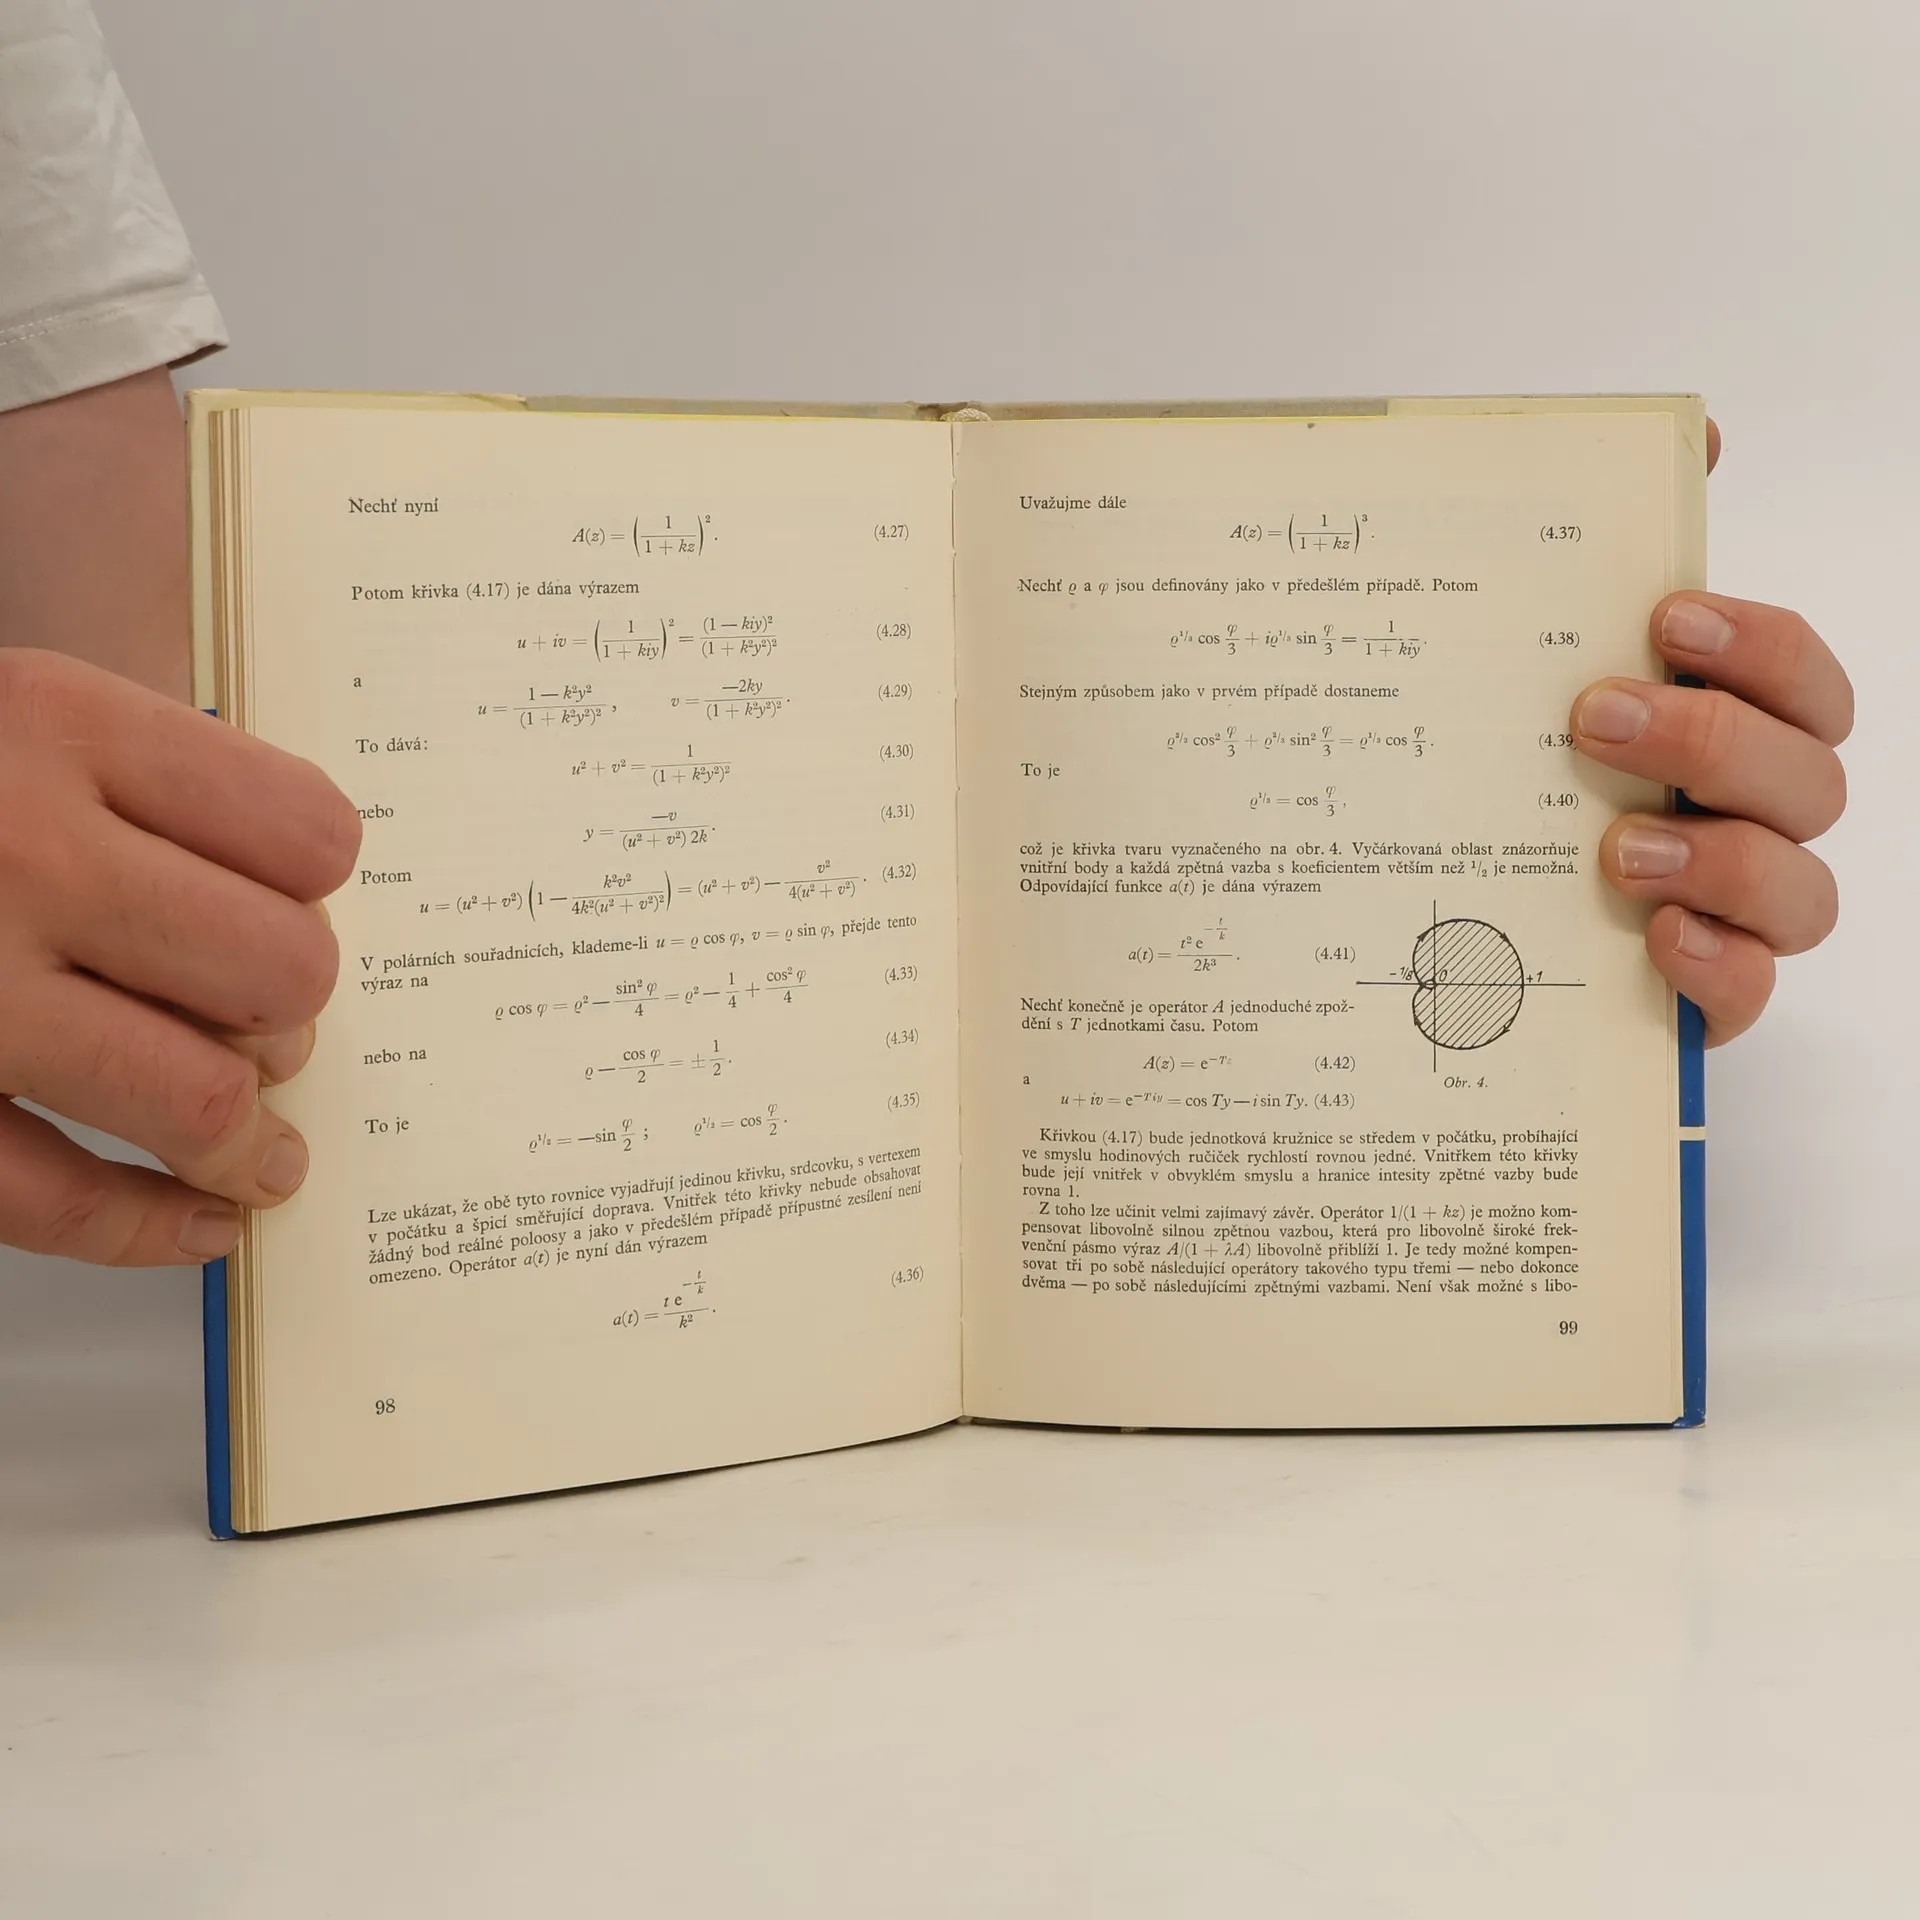 Nechť nyní
A(z) = (1 / (1 + kz))². (4.27)
Potom křivka (4.17) je dána výrazem
u + iv = (1 / (1 + kiy))² = (1 — kiy)² / (1 + k²y²)² (4.28)
a
u = (1 — k²y²) / (1 + k²y²)² , v = —2ky / (1 + k²y²)² . (4.29)
To dává:
u² + v² = 1 / (1 + k²y²)² (4.30)
nebo
y = —v / (u² + v²) 2k . (4.31)
Potom
u = (u² + v²) (1 — k²v² / 4k²(u² + v²)²) = (u² + v²) — v² / 4(u² + v²) . (4.32)
V polárních souřadnicích, klademe-li u = ϱ cos φ, v = ϱ sin φ, přejde tento
výraz na
ϱ cos φ = ϱ² — sin² φ / 4 = ϱ² — 1/4 + cos² φ / 4 (4.33)
nebo na
ϱ — cos φ / 2 = ± 1/2 . (4.34)
To je
ϱ^1/2 = —sin φ/2 ; ϱ^1/2 = cos φ/2 . (4.35)
Lze ukázat, že obě tyto rovnice vyjadřují jedinou křivku, srdcovku, s vertexem
v počátku a špicí směřující doprava. Vnitřek této křivky nebude obsahovat
žádný bod reálné poloosy a jako v předešlém případě přípustné zesílení není
omezeno. Operátor a(t) je nyní dán výrazem
a(t) = t e^(—t/k) / k² . (4.36)
98
Uvažujme dále
A(z) = (1 / (1 + kz))³ . (4.37)
Nechť ϱ a φ jsou definovány jako v předešlém případě. Potom
ϱ^1/3 cos φ/3 + iϱ^1/3 sin φ/3 = 1 / (1 + kiy) . (4.38)
Stejným způsobem jako v prvém případě dostaneme
ϱ^2/3 cos² φ/3 + ϱ^2/3 sin² φ/3 = ϱ^1/3 cos φ/3 . (4.39
To je
ϱ^1/3 = cos φ/3 , (4.40)
což je křivka tvaru vyznačeného na obr. 4. Vyčárkovaná oblast znázorňuje
vnitřní body a každá zpětná vazba s koeficientem větším než 1/2 je nemožná.
Odpovídající funkce a(t) je dána výrazem
a(t) = t² e^(—t/k) / 2k³ . (4.41)
—1/8 0 +1
Nechť konečně je operátor A jednoduché zpož-
dění s T jednotkami času. Potom
A(z) = e^—Tz (4.42)
Obr. 4.
a
u + iv = e^—Tiy = cos Ty — i sin Ty. (4.43)
Křivkou (4.17) bude jednotková kružnice se středem v počátku, probíhající
ve smyslu hodinových ručiček rychlostí rovnou jedné. Vnitřkem této křivky
bude její vnitřek v obvyklém smyslu a hranice intesity zpětné vazby bude
rovna 1.
Z toho lze učinit velmi zajímavý závěr. Operátor 1/(1 + kz) je možno kom-
pensovat libovolně silnou zpětnou vazbou, která pro libovolně široké frek-
venční pásmo výraz A/(1 + λA) libovolně přiblíží 1. Je tedy možné kompen-
sovat tři po sobě následující operátory takového typu třemi — nebo dokonce
dvěma — po sobě následujícími zpětnými vazbami. Není však možné s libo-
99